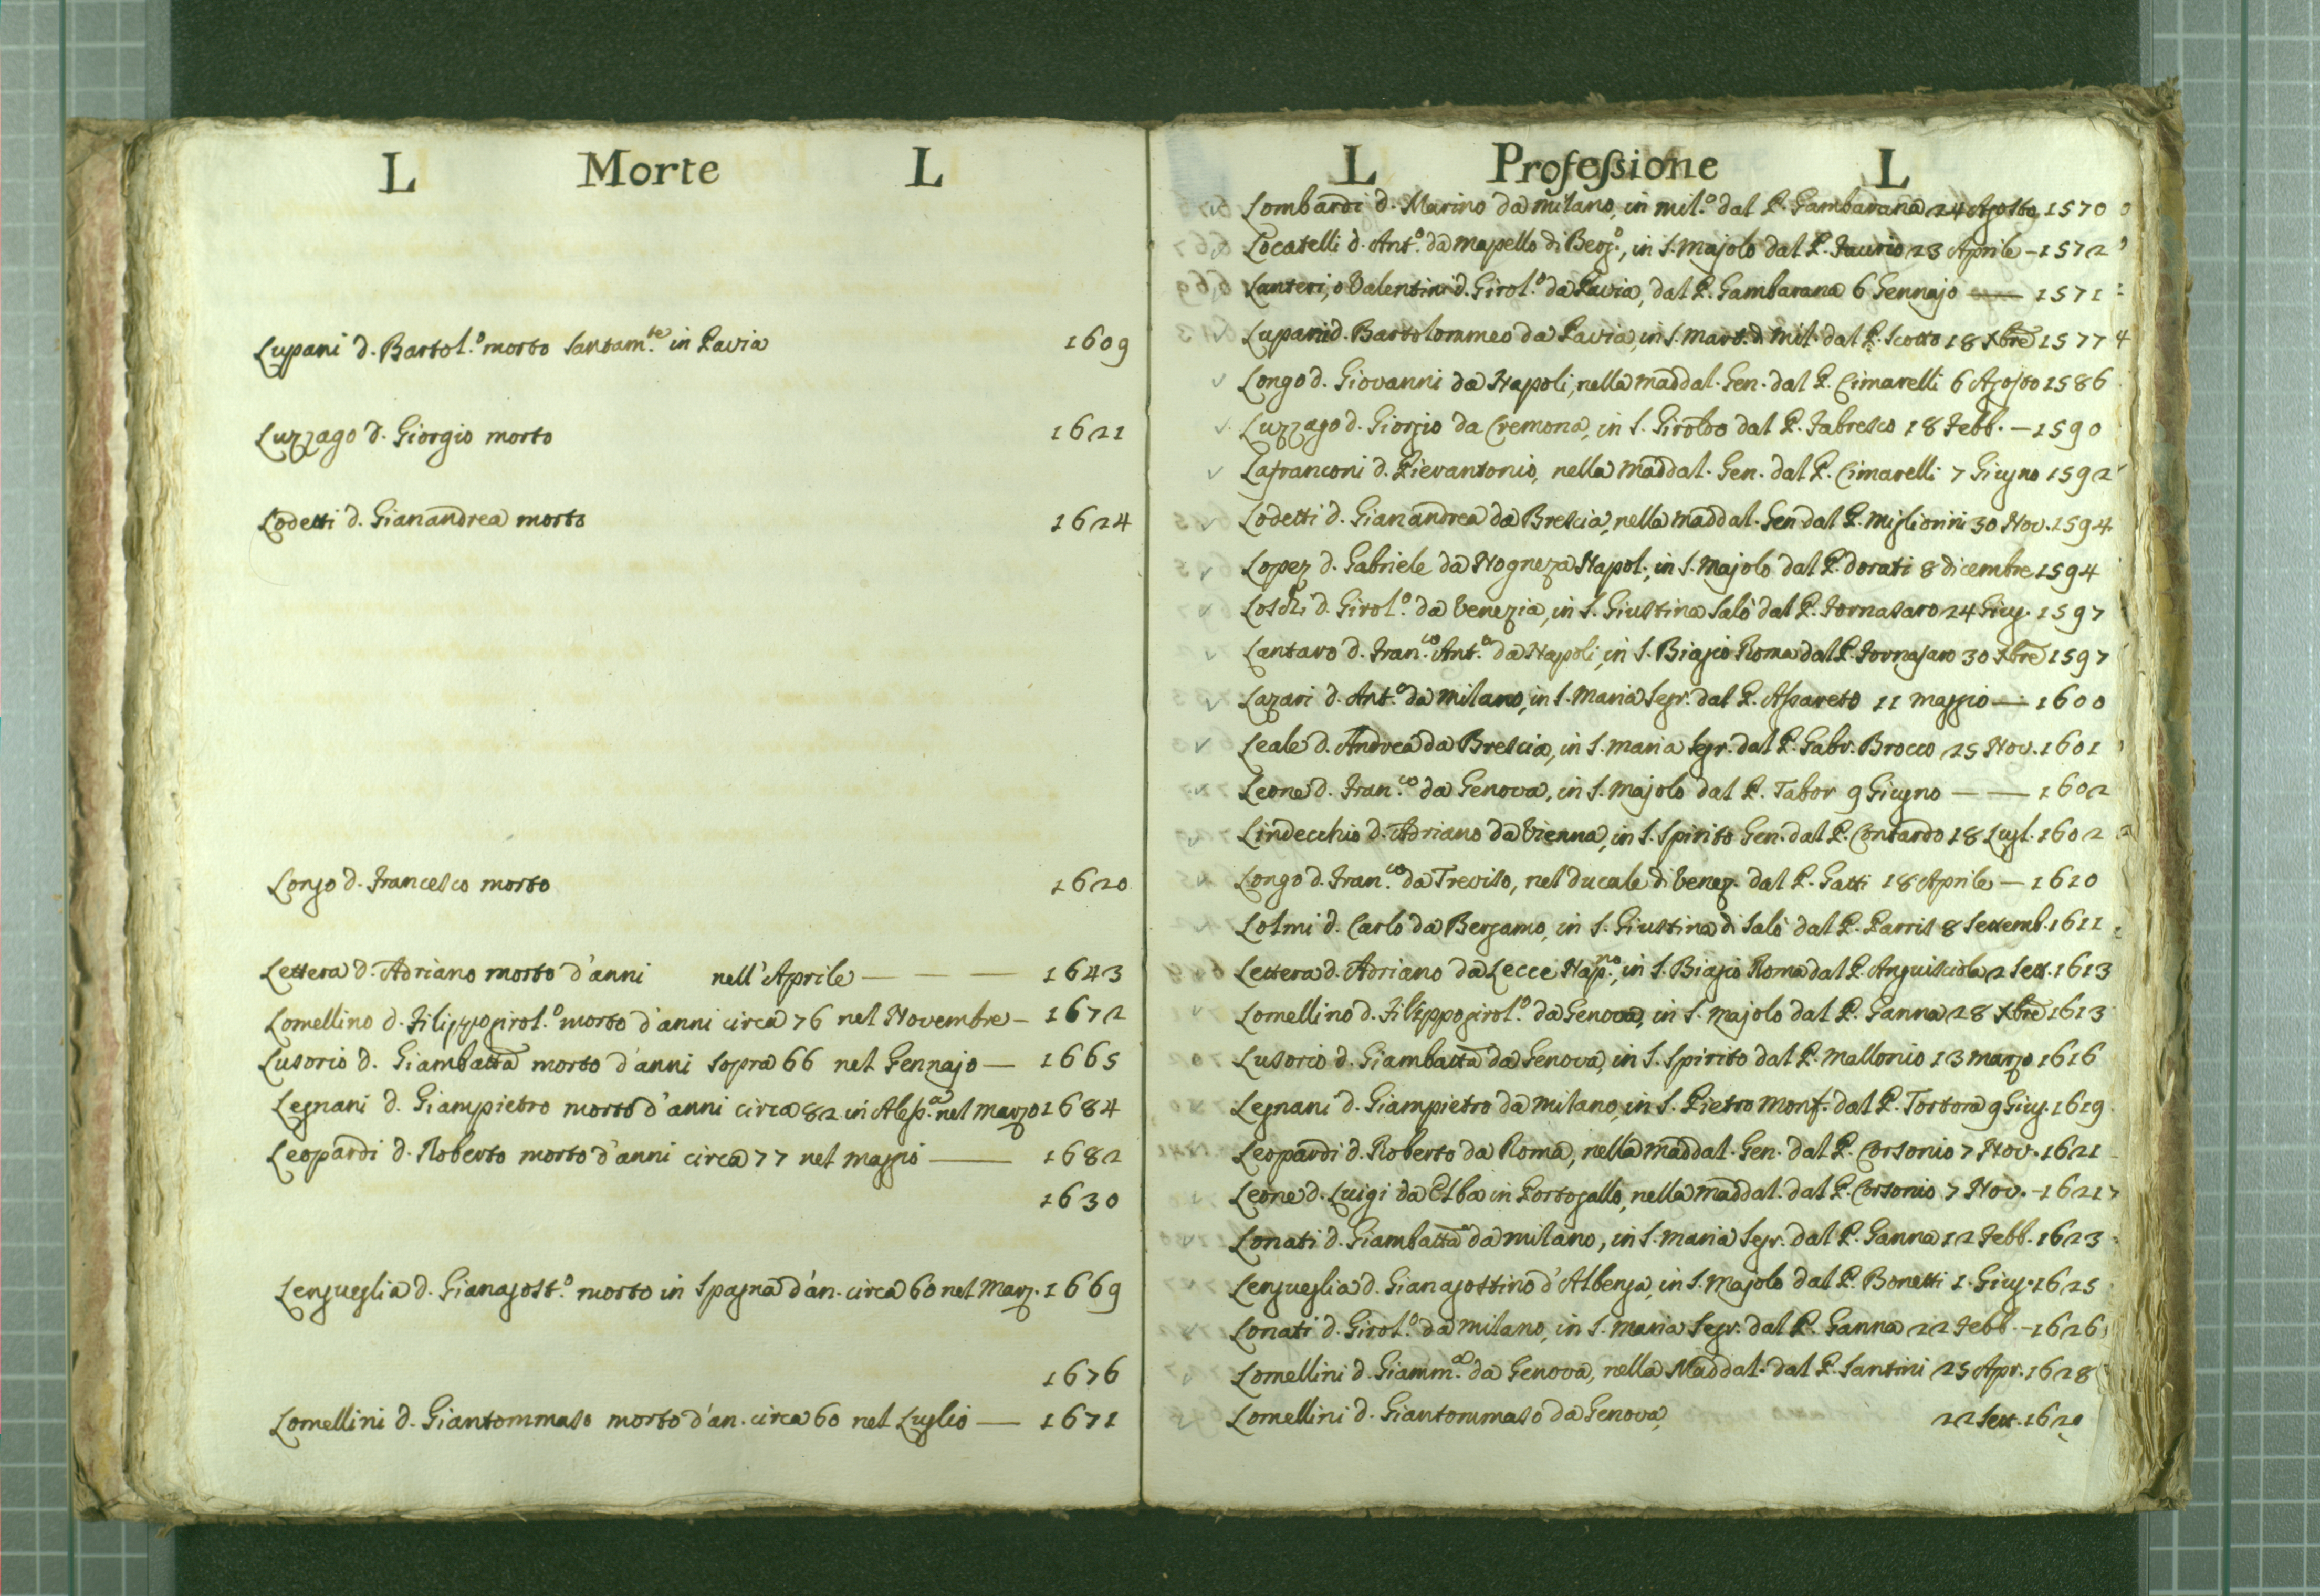 L Morte L
Lupani d. Bartol.º morto santam.te in Pavia 1609
Luzzago d. Giorgio morto 1621
Lodetti d. Gianandrea morto 1624
Longo d. Francesco morto 1620
Lettera d. Adriano morto d'anni nell'Aprile — — — 1643
Lomellino d. Filippogirol.º morto d'anni circa 76 nel Novembre – 1672
Lusorio d. Giambatta morto d'anni sopra 66 nel Gennajo — 1665
Legnani d. Giampietro morto d'anni circa 82 in Aless.a nel marzo 1684
Leopardi d. Roberto morto d'anni circa 77 nel maggio — 1682
1630
Lengueglia d. Gianagost.º morto in Spagna d'an. circa 60 nel Marz. 1669
1676
Lomellini d. Giantommaso morto d'an. circa 60 nel Luglio — 1671
L Professione L
Lombardi d. Marino da milano, in mil.º dal P. Gambarana 24 Agosto 1570
Locatelli d. Ant.º da mapello di Berg.º, in S. Majolo dal P. 23 Aprile – 1572
Lanteri, o Valentini d. Girol.º da Pavia, dal P. Gambarana 6 Gennajo — 1571
Lupani d. Bartolommeo da Pavia, in S. Mart. di Mil. dal P. Scotto 18 Xbre 1577
Longo d. Giovanni da Napoli, nella maddal. Gen. dal P. Cimarelli 6 Agosto 1586
Luzzago d. Giorgio da Cremona, in S. Giroldo dal P. Fabresco 18 Febb. – 1590
Lafranconi d. Pierantonio, nella maddal. Gen. dal P. Cimarelli 7 Giugno 1592
Lodetti d. Gianandrea da Brescia, nella maddal. Gen. dal P. Migliorini 30 Nov. 1594
Lopez d. Gabriele da Nogneza Napol., in S. Majolo dal P. Dorati 8 dicembre 1594
Loschi d. Girol.º da Venezia, in S. Giustina Salò dal P. Fornasaro 24 Giug. 1597
Lantaro d. Fran.co Ant.º da Napoli, in S. Biagio Roma dal P. Fornasaro 30 Xbre 1597
Lazari d. Ant.º da milano, in S. Maria Segr. dal P. Aspareto 11 maggio — 1600
Leale d. Andrea da Brescia, in S. maria Segr. dal P. Gabr. Brocco 25 Nov. 1601
Leone d. Fran.co da Genova, in S. Majolo dal P. Tabor 9 Giugno — — 1602
Lindecchio d. Adriano da Vienna, in S. Spirito Gen. dal P. Contardo 18 Lugl. 1602
Longo d. Fran.co da Treviso, nel ducale di Venez. dal P. Gatti 18 Aprile — 1610
Lolmi d. Carlo da Bergamo, in S. Giustina di Salò dal P. Parris 8 Settemb. 1611
Lettera d. Adriano da Lecce Nap.no, in S. Biagio Roma dal P. Anguisciola 2 Sett. 1613
Lomellino d. Filippogirol.º da Genova, in S. Majolo dal P. Ganna 28 Xbre 1613
Lusorio d. Giambatta da Genova, in S. Spirito dal P. Mallonio 13 marzo 1616
Legnani d. Giampietro da milano, in S. Pietro Monf. dal P. Tortora 9 Giug. 1619
Leopardi d. Roberto da Roma, nella maddal. Gen. dal P. Corsonio 7 Nov. 1621
Leone d. Luigi da Elba in Portogallo, nella maddal. dal P. Corsonio 7 Nov. – 1621
Lonati d. Giambatta da milano, in S. maria Segr. dal P. Ganna 12 Febb. 1623
Lengueglia d. Gianagostino d'Albenga, in S. Majolo dal P. Bonetti 1. Giug. 1625
Lonati d. Girol.º da milano, in S. Maria Segr. dal P. Ganna 22 Febb. – 1626
Lomellini d. Giamm.a da Genova, nella Maddal. dal P. Santini 25 Apr. 1628
Lomellini d. Giantommaso da Genova, 22 Sett.